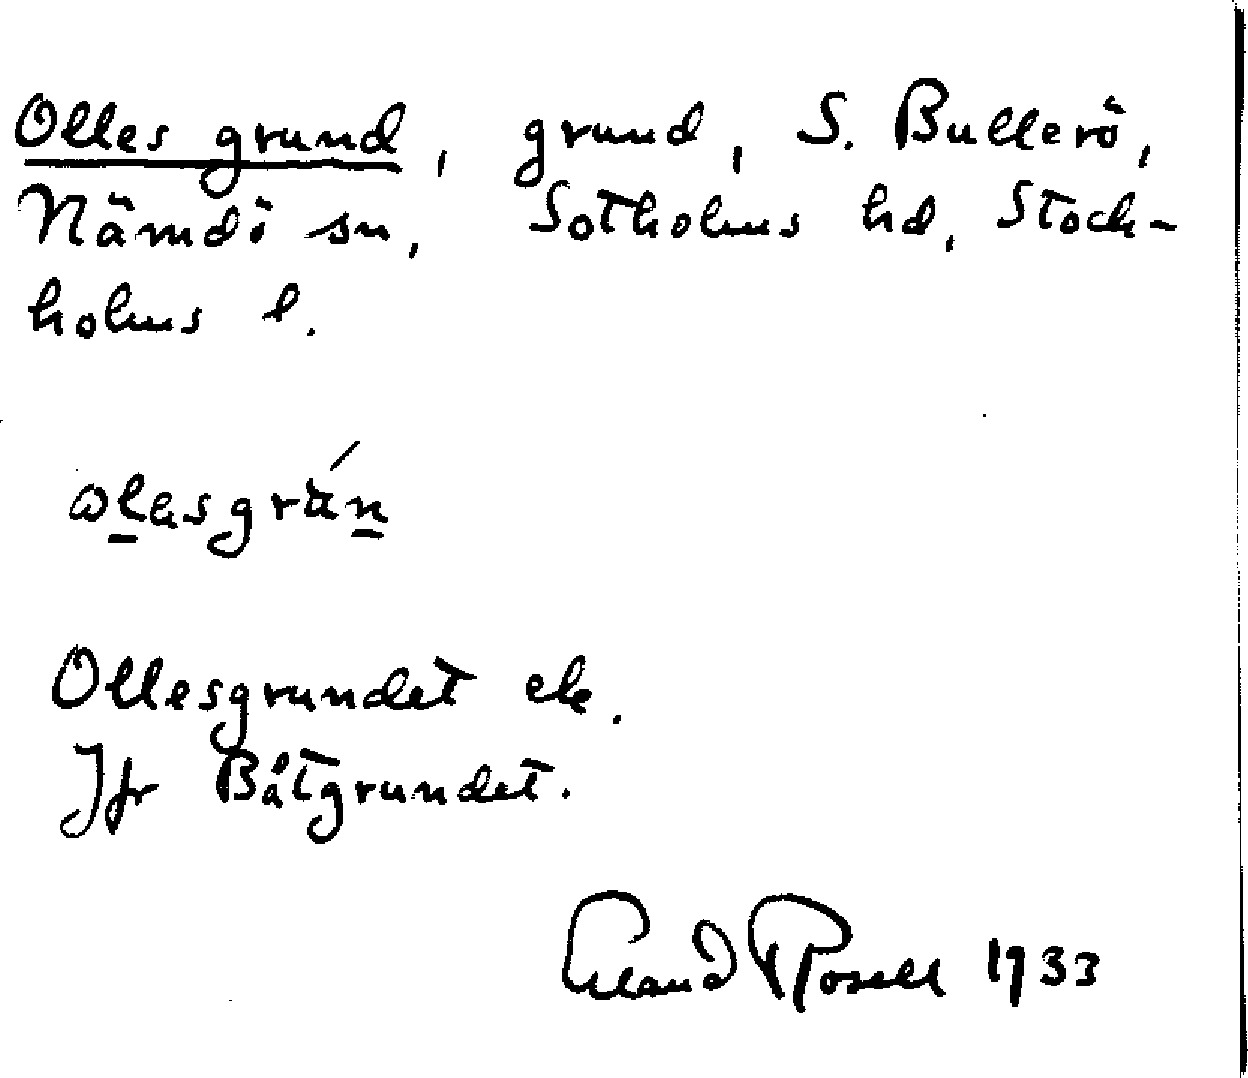 Olles grund, grund, S. Bullerö,
Nämdö sn, Sotholms hd, Stock-
holms l.
Ollesgrundet ek.
Jfr Båtgrundet.
Erland Rosell 1933